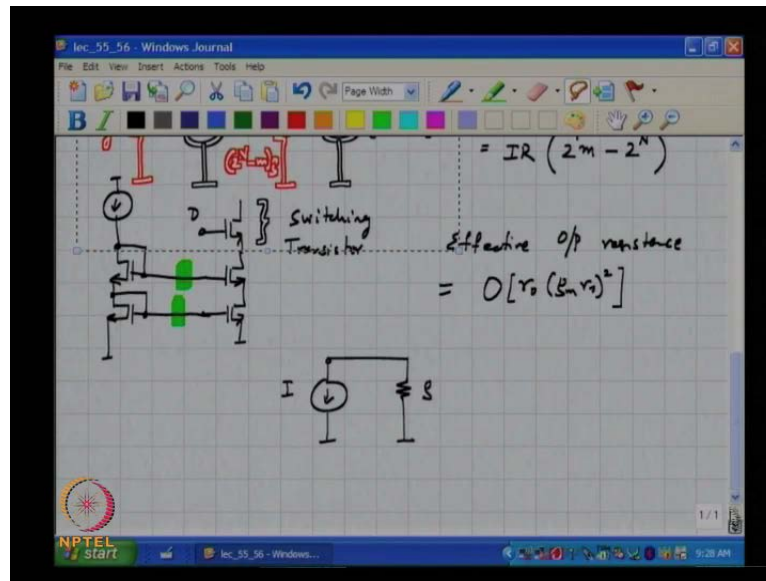 lec_55_56 - Windows Journal
File Edit View Insert Actions Tools Help
Page Width
B I
= IR (2m - 2^N)
D
Switching
Transistor
Effective O/p resistance
= O[r₀ (gm r₀)²]
I
g
1/1
NPTEL
start
lec_55_56 - Windows...
9:28 AM